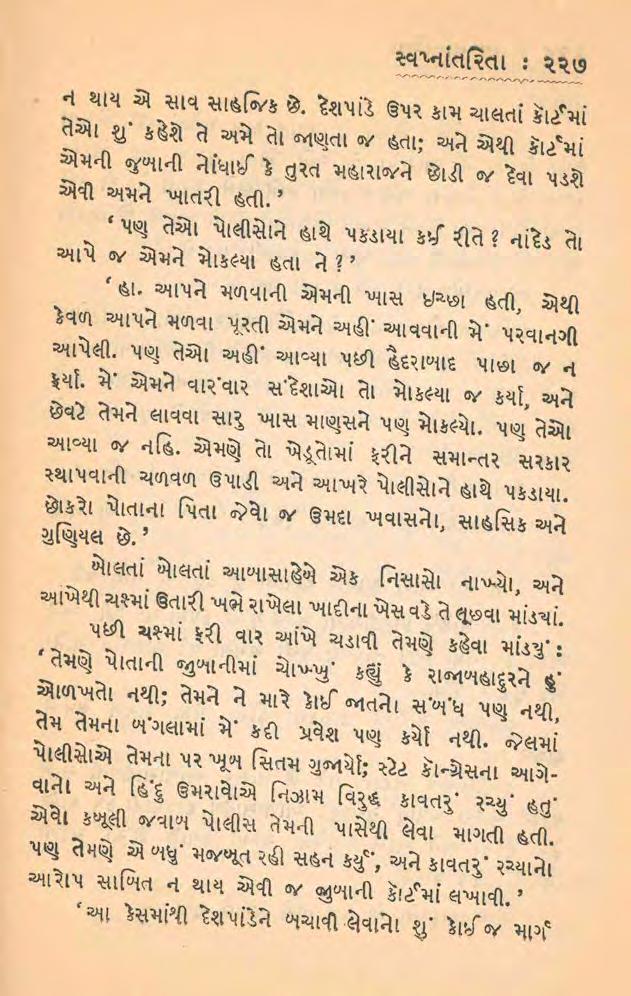 સ્વપ્નાંતરિતા : ૨૨૭
ન થાય એ સાવ સાહજિક છે. દેશપાંડે ઉપર કામ ચાલતાં કૉર્ટમાં
તેઓ શું કહેશે તે અમે તો જાણતા જ હતા; અને એથી કૉર્ટમાં
એમની જુબાની નોંધાઈ કે તુરત મહારાજને છોડી જ દેવા પડશે
એવી અમને ખાતરી હતી.’
‘પણ તેઓ પોલીસોને હાથે પકડાયા કઈ રીતે ? નાંદેડ તો
આપે જ એમને મોકલ્યા હતા ને ?’
‘હા. આપને મળવાની એમની ખાસ ઇચ્છા હતી, એથી
કેવળ આપને મળવા પૂરતી એમને અહીં આવવાની મેં પરવાનગી
આપેલી. પણ તેઓ અહીં આવ્યા પછી હૈદરાબાદ પાછા જ ન
ફર્યા. મેં એમને વારંવાર સંદેશાઓ તો મોકલ્યા જ કર્યા, અને
છેવટે તેમને લાવવા સારુ ખાસ માણસને પણ મોકલ્યો. પણ તેઓ
આવ્યા જ નહિ. એમણે તો ખેડૂતોમાં ફરીને સમાન્તર સરકાર
સ્થાપવાની ચળવળ ઉપાડી અને આખરે પોલીસોને હાથે પકડાયા.
છોકરો પોતાના પિતા જેવો જ ઉમદા ખવાસનો, સાહસિક અને
ગુણિયલ છે.’
બોલતાં બોલતાં આબાસાહેબે એક નિસાસો નાખ્યો, અને
આંખેથી ચશ્માં ઉતારી ખભે રાખેલા ખાદીના ખેસ વડે તે લૂછવા માંડ્યાં.
પછી ચશ્માં ફરી વાર આંખે ચડાવી તેમણે કહેવા માંડ્યું :
‘તેમણે પોતાની જુબાનીમાં ચોખ્ખું કહ્યું કે રાજાબહાદુરને હું
ઓળખતો નથી; તેમને ને મારે કોઈ જાતનો સંબંધ પણ નથી,
તેમ તેમના બંગલામાં મેં કદી પ્રવેશ પણ કર્યો નથી. જેલમાં
પોલીસોએ તેમના પર ખૂબ સિતમ ગુજાર્યો; સ્ટેટ કૉન્ગ્રેસના આગે-
વાનો અને હિંદુ ઉમરાવોએ નિઝામ વિરુદ્ધ કાવતરું રચ્યું હતું
એવો કબૂલી જવાબ પોલીસ તેમની પાસેથી લેવા માગતી હતી.
પણ તેમણે એ બધું મજબૂત રહી સહન કર્યું, અને કાવતરું રચ્યાનો
આરોપ સાબિત ન થાય એવી જ જુબાની કૉર્ટમાં લખાવી.’
‘આ કેસમાંથી દેશપાંડેને બચાવી લેવાનો શું કોઈ જ માર્ગ